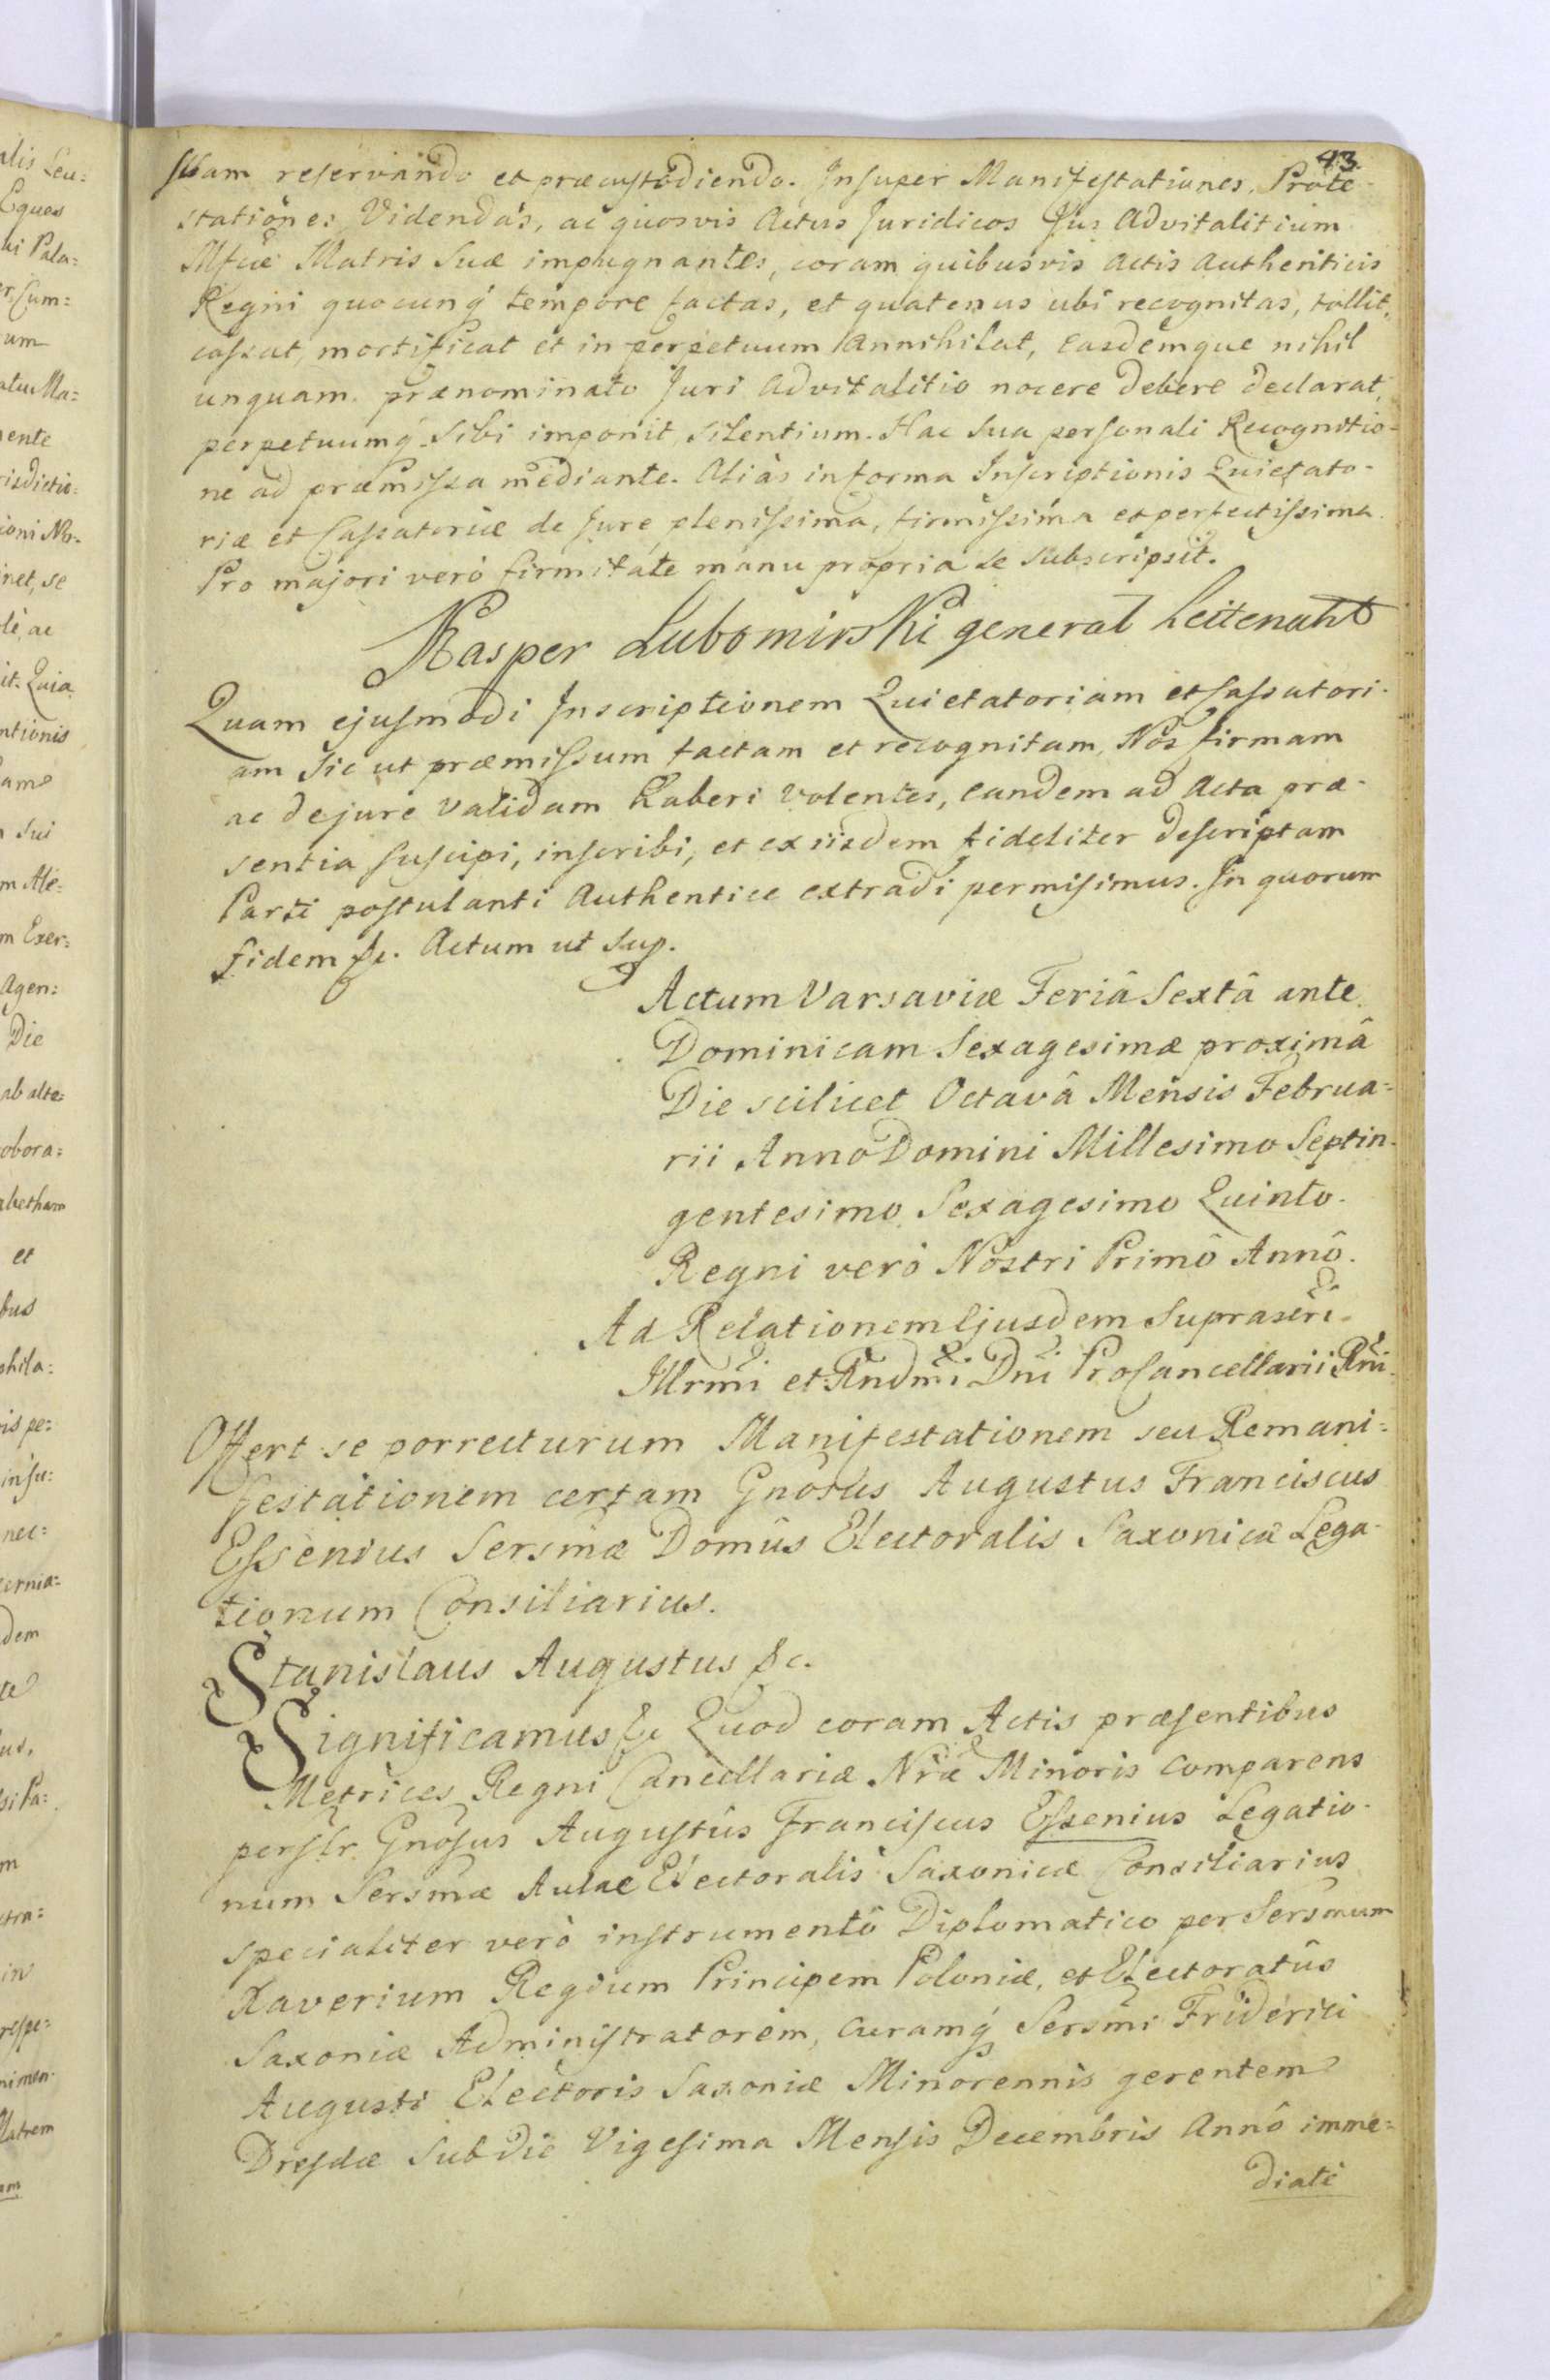 43.
suam reservando et præcustodiendo. Insuper Manifestationes, Prote-
stationes, Videndas, ac quosvis Actus Juridicos Jus Advitalitium
Mfcæ Matris Suæ impugnantes, coram quibusvis Actis Authenticis
Regni quocunq́ tempore factas, et quatenus ubi recognitas, tollit,
cassat, mortificat et in perpetuum Annihilat, Easdemque nihil
unquam prænominato Juri Advitalitio nocere debere declarat,
perpetuumq́ Sibi imponit Silentium. Hac Sua personali Recognitio-
ne ad præmissa mediante. Aliàs in forma Inscriptionis Quietato-
riæ et Cassatoriæ de Jure plenissima, firmissima et perfectissima.
Pro majori verò firmitate manu propria se Subscripsit.
Kasper Lubomirski general Leitenant
Quam ejusmodi Inscriptionem Quietatoriam et Cassatori-
am Sic ut præmissum factam et recognitam, Nos firmam
ac de jure Validam haberi Volentes, eandem ad Acta præ-
sentia Suscipi, inscribi, et ex iisdem fideliter descriptam
Parti postulanti Authentice extradi permisimus. In quorum
fidem &c. Actum ut Sup.
Actum Varsaviæ Feriâ Sextâ ante
Dominicam Sexagesimæ proximâ
Die scilicet Octavâ Mensis Februa=
rii Anno Domini Millesimo Septin-
gentesimo Sexagesimo Quinto.
Regni verò Nostri Primô Annô.
Ad Relationem Ejusdem Suprascri.
Illrmi et Rndmi Dni ProCancellarii Rni
Offert se porrecturum Manifestationem seu Remani=
festationem certam Gnosus Augustus Franciscus
Essenius Sersmæ Domûs Electoralis Saxonicæ Lega-
tionum Consiliarius.
Stanislaus Augustus &c.
Significamus &c Quod coram Actis præsentibus
Metrices Regni Cancellariæ Nræ Minoris comparens
perslr Gnosus Augustus Franciscus Essenius Legatio-
num Sersmæ Aulae Electoralis Saxonicæ Consiliarius
specialiter verò instrumentô Diplomatico per Sersmum
Xaverium Regium Principem Poloniæ, et Electoratûs
Saxoniæ Administratorem, curamq́ Sersmi Friderici
Augusti Electoris Saxoniæ Minorennis gerentem
Dresdæ Sub die Vigesima Mensis Decembris Annô imme=
diati